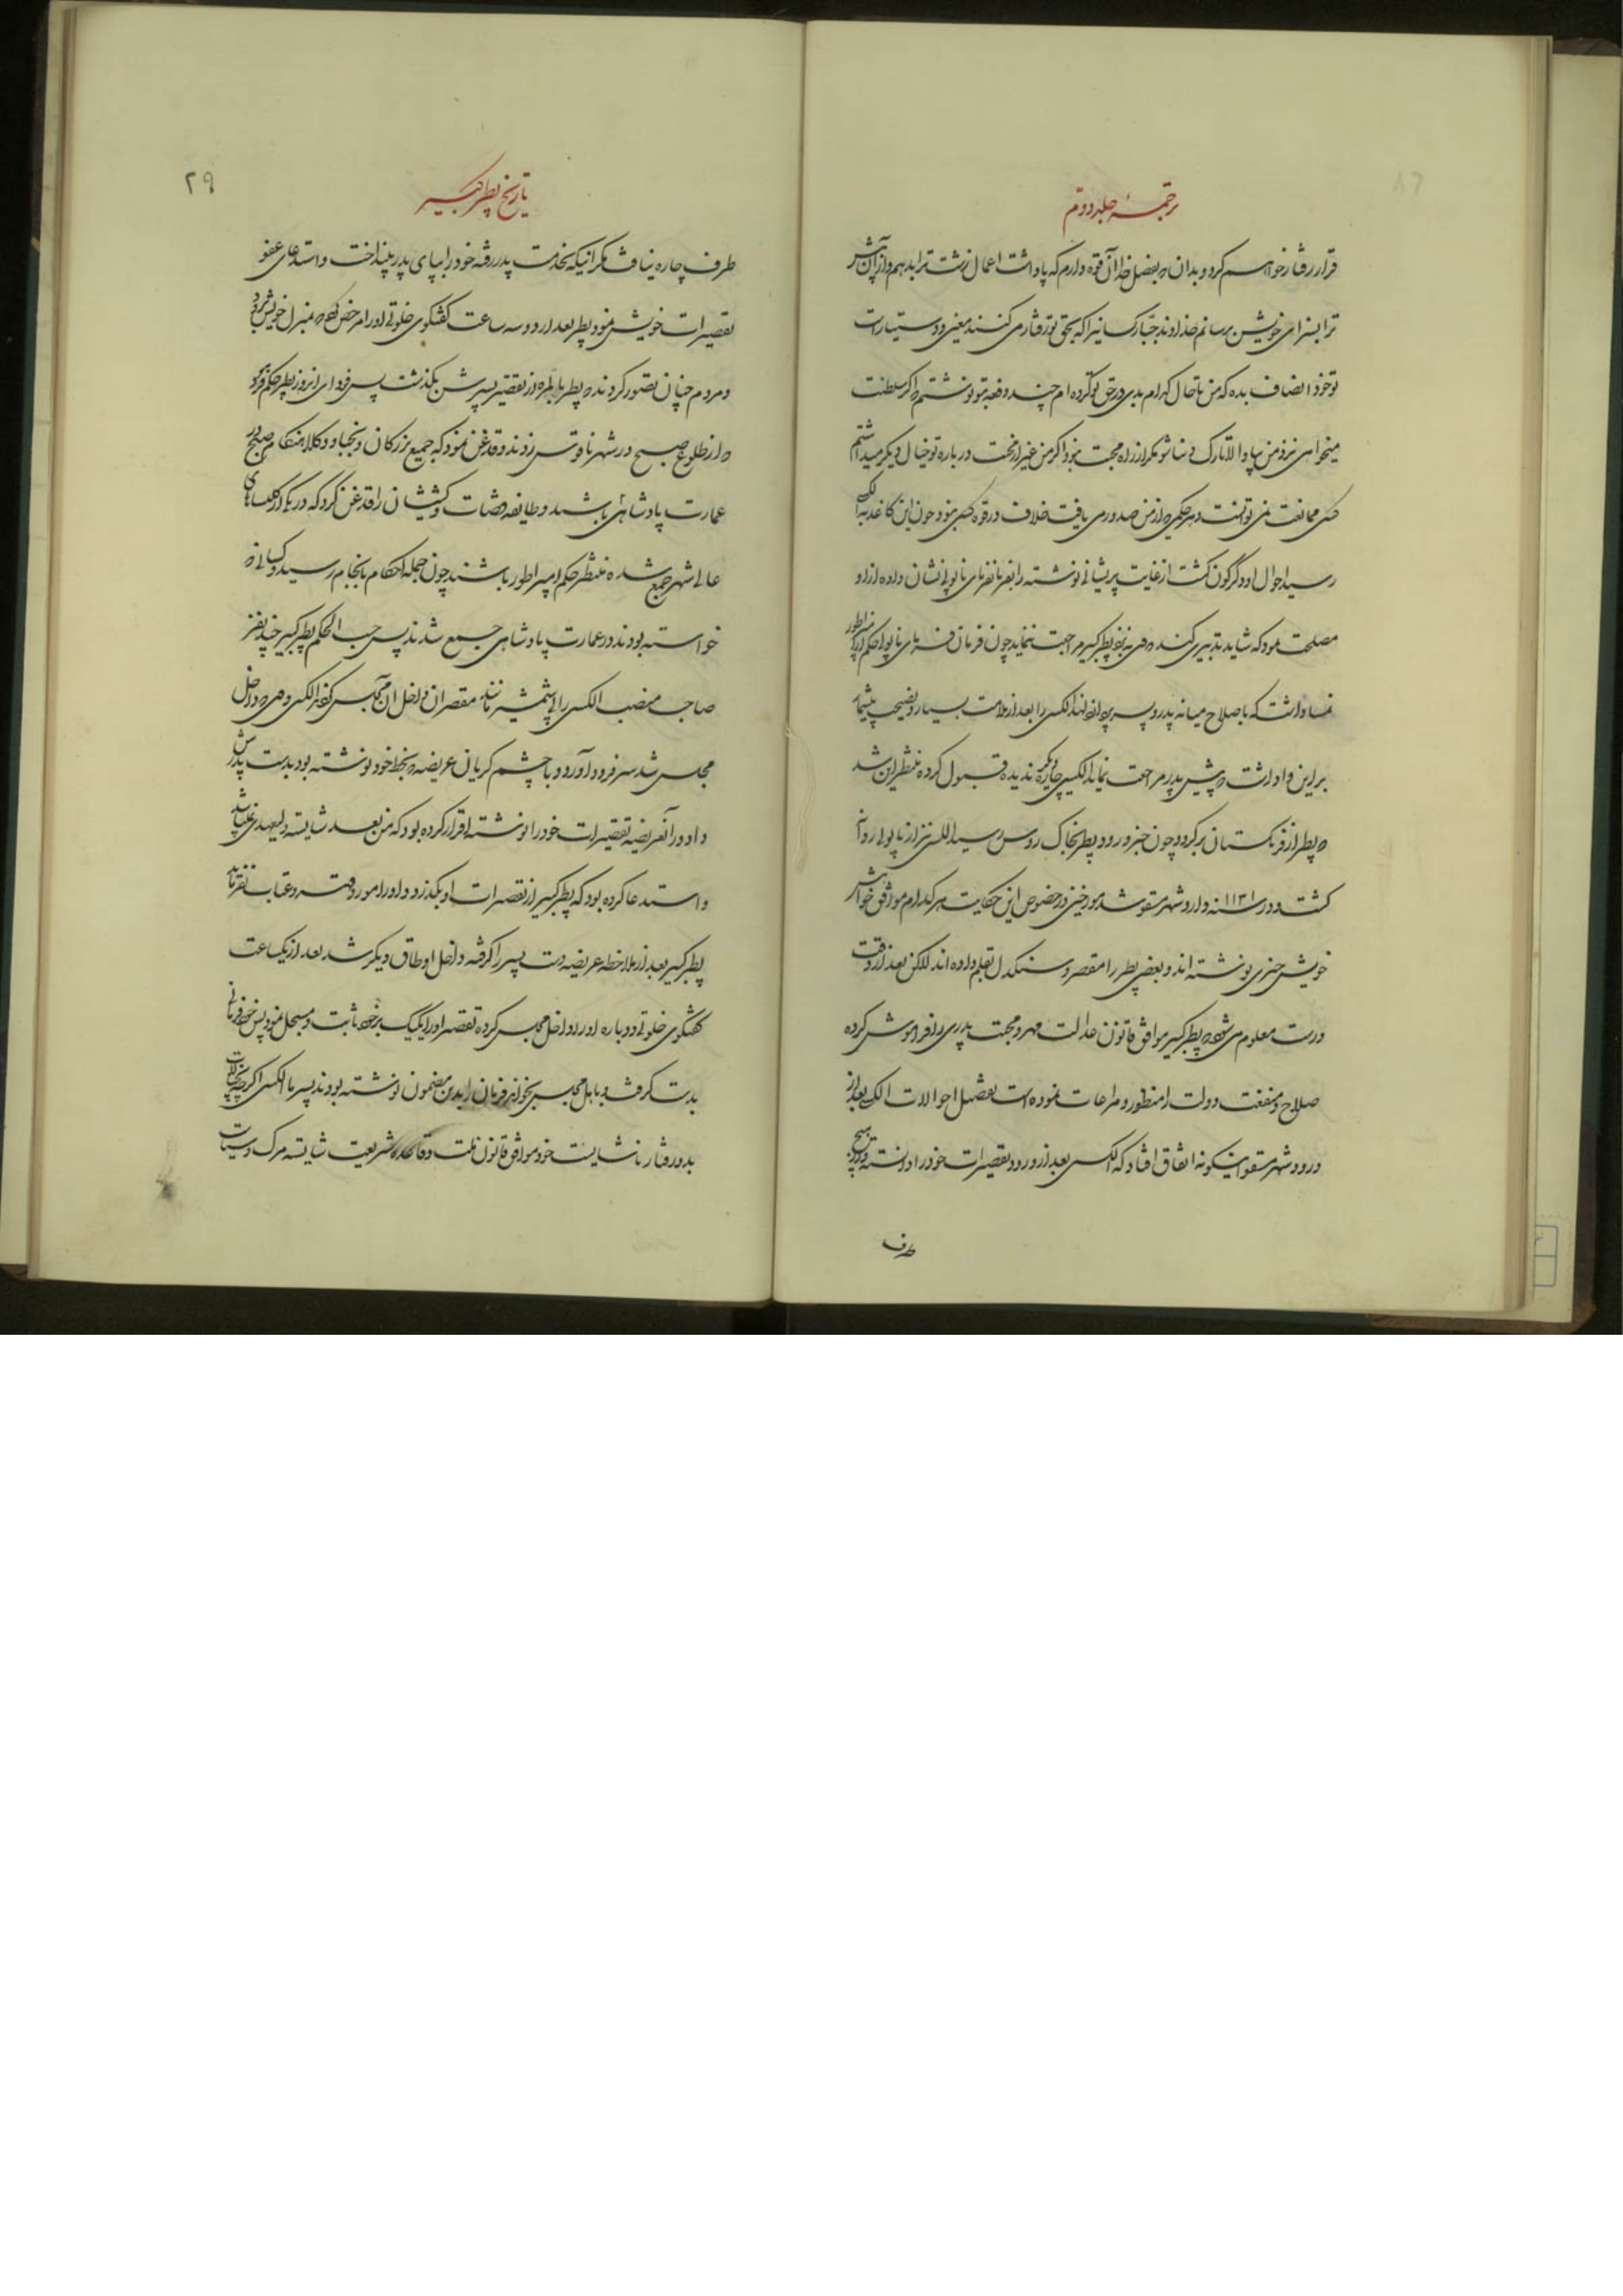 ترجمهٔ جلد دوم
قرار رفتار خواهم کرد و بدان که بفضل خدا آن قوه دارم که پاداشت اعمال زشت ترا بدهم و از آن
ترا بسزای خویش برسانم خداوند جبار کسانیرا که بحق تو رفتار می کنند معین و دستیارت
تو خود انصاف بده که من تا حال کدام بدی در حق تو کرده ام چند دفعه بتو نوشتم که اگر سلطنت
میخواهی نزد من بیا و الا تارک دنیا شو مگر از راه محبت نبود اگر من غیر از محبت در باره تو خیال دیگر میداشتم
کسی ممانعت نمی توانست و هر حکمی که از من صدور می یافت خلاف در قوه کسی نبود چون این کاغذ به الکسی
رسید احوال او دگرگون گشت از غایت پریشانی نوشته را بفرمانفرمای ناپولی نشان داده از او
مصلحت نمود که شاید تدبیری کند که وی به نزد پطر کبیر مراجعت ننماید چون فرمان فرمای ناپولی حکم از امپراطور
نمسا داشت که باصلاح میانه پدر و پسر پردازد لهذا الکسی را بعد از ملامت بسیار و نصیحت بیشمار
بر این واداشت که پیش پدر مراجعت نماید الکسی چاره دیگر ندیده قبول کرده منتظر این شد
که پطر از فرنگستان برگردد چون خبر ورود پطر بخاک روس رسید الکسی نیز از ناپولی روانه
گشت و در سنه ۱۱۳۱ وارد شهر مسقو شد مورخین در خصوص این حکایت هر کدام موافق خواهش
خویش چیزی نوشته اند و بعضی پطر را مقصر و سنگدل بقلم داده اند لکن بعد از دقت
درست معلوم می شود که پطر کبیر موافق قانون عدالت مهر و محبت پدری را فراموش کرده
صلاح و منفعت دولت را منظور و مراعات نموده است تفصیل احوالات الکسی بعد از
ورود شهر مسقو اینگونه اتفاق افتاد که الکسی بعد از ورود تقصیرات خود را دانسته و از هیچ
طرف
تاریخ پطر کبیر
۲۹
طرف چاره نیافت مگر اینکه بخدمت پدر رفته خود را بپای پدر بینداخت و استدعای عفو
تقصیرات خویش نمود پطر بعد از دو سه ساعت گفتگوی خلوتی او را مرخص کرد که بمنزل خویش برود
و مردم چنان تصور کردند که پطر بالمره از تقصیر پسرش بگذشت پس فردای آنروز پطر حکم کرد
که از طلوع صبح در شهر ناقوس زدند و قدغن نمود که جمیع بزرگان و نجبا و وکلا هنگام صبح در
عمارت پادشاهی باشند و طایفه قضات و کشیشان را قدغن کرد که در یکی از کلیساهای
عالی شهر جمع شده منتظر حکم امپراطور باشند چون جمله احکام بانجام رسید و کسانی که
خواسته بودند در عمارت پادشاهی جمع شدند پس حسب الحکم پطر کبیر چند نفر
صاحب منصب الکسی را بی شمشیر مانند مقصران داخل آن مجلس کرد الکسی وقتی که داخل
مجلس شد سر فرود آورد و با چشم گریان عریضه که بخط خود نوشته بود بدست پدرش
داد و در آنعریضه تقصیرات خود را نوشته اقرار کرده بود که من بعد شایسته ولیعهدی نمیباشد
و استدعا کرده بود که پطر کبیر از تقصیرات او بگذرد و او را مورد قهر و عتاب نفرماید
پطر کبیر بعد از ملاحظه عریضه دست پسر را گرفته داخل اوطاق دیگر شد بعد از یکساعت
گفتگوی خلوتی دوباره او را داخل مجلس کرده تقصیر او را یک یک بر خود ثابت و مسجل نمود پس خود فرمانی
بدست گرفت و باهل مجلس بخواند فرمان را بدین مضمون نوشته بودند پسر ما الکسی اگر چه بجهت
بد و رفتار ناشایست خود موافق قانون ملت و قاعده شریعت شایسته مرگ و سیاست